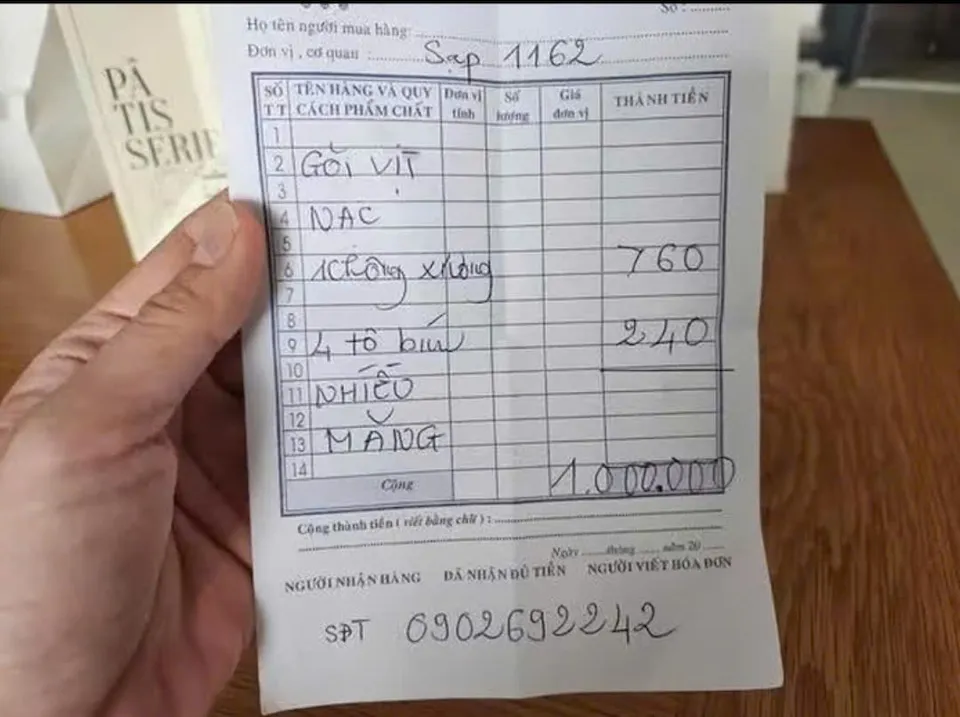 PÂ
TIS
SERIE
Số : ..........
Họ tên người mua hàng:
Đơn vị , cơ quan : Sạp 1162
SỐ TT TÊN HÀNG VÀ QUY CÁCH PHẨM CHẤT Đơn vị tính Số lượng Giá đơn vị THÀNH TIỀN
1
2 GỎI VỊT
3
4 NAC
5
6 không xương 760
7
8
9 4 tô bún 240
10
11 NHIỀU
12
13 MĂNG
14
Cộng 1.000.000
Cộng thành tiền ( viết bằng chữ ) :
Ngày ...... tháng ...... năm 20 ......
NGƯỜI NHẬN HÀNG ĐÃ NHẬN ĐỦ TIỀN NGƯỜI VIẾT HÓA ĐƠN
SĐT 0902692242